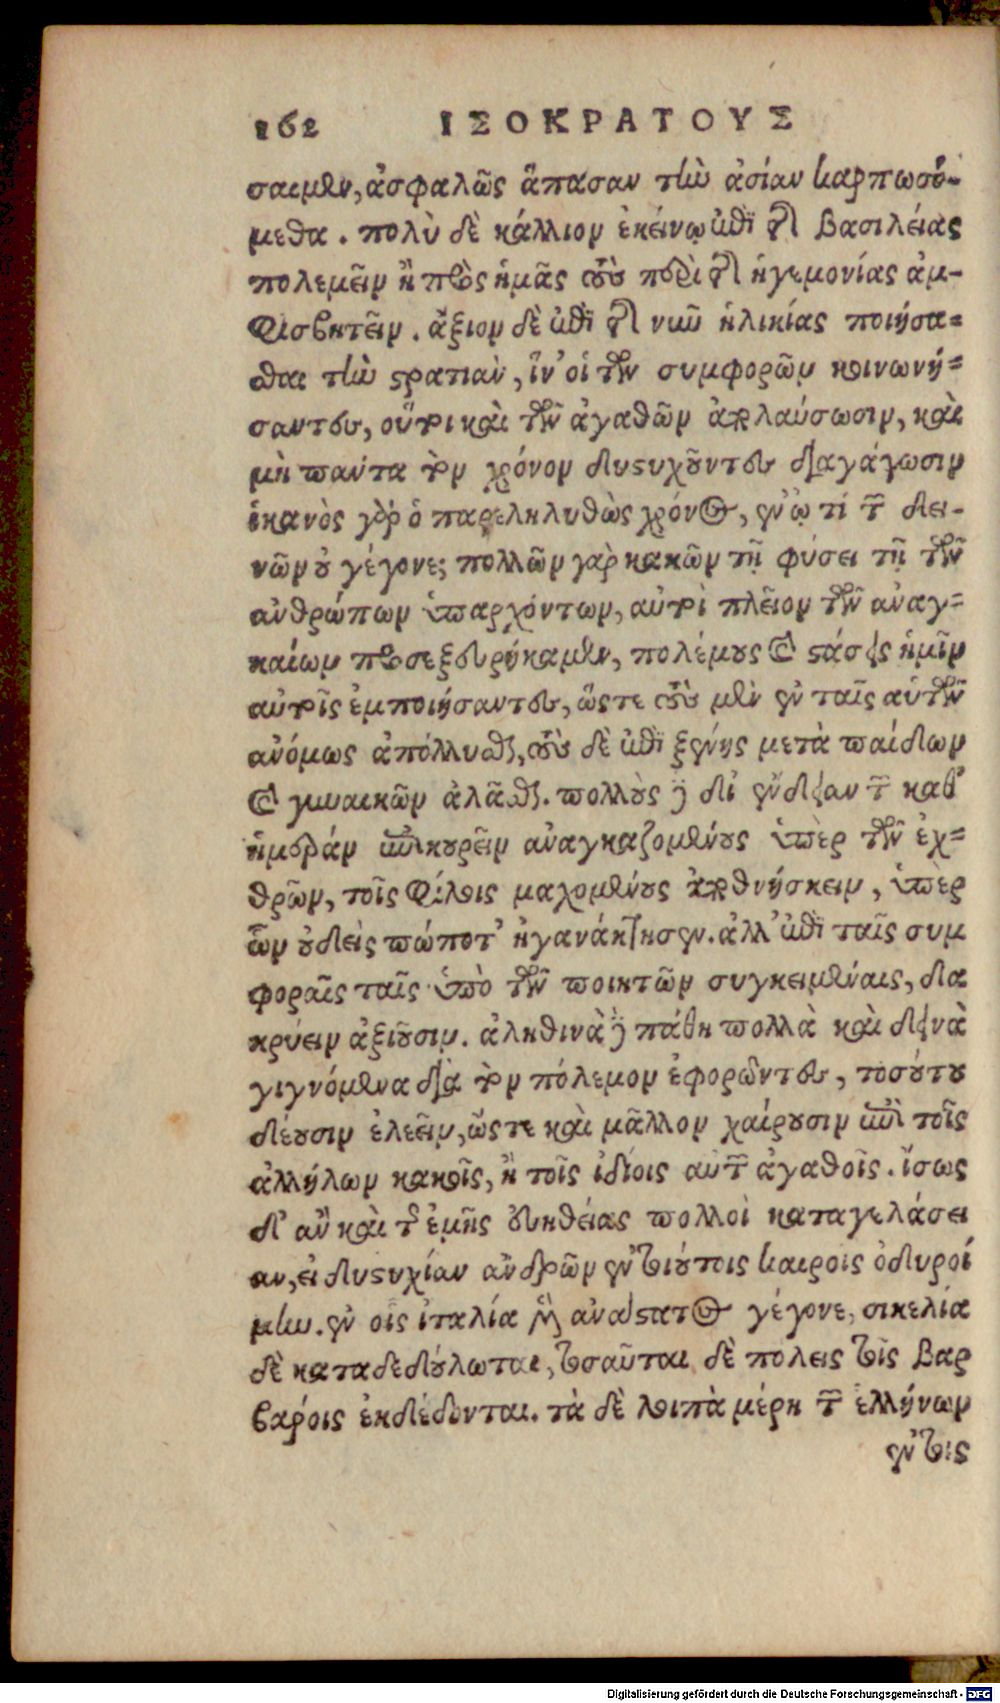 162 ΙΣΟΚΡΑΤΟΥΣ
σαιμεν, ἀσφαλῶς ἅπασαν τὴν ἀσίαν καρπωσό-
μεθα. πολὺ δὲ κάλλιον ἐκείνῳ περὶ τῆς βασιλείας
πολεμεῖν ἢ πρὸς ἡμᾶς αὐτοὺς περὶ τῆς ἡγεμονίας ἀμ-
φισβητεῖν. ἄξιον δὲ ἐπὶ τῆς νῦν ἡλικίας ποιήσα-
σθαι τὴν στρατιὰν, ἵν' οἱ τῶν συμφορῶν κοινωνή-
σαντες, οὗτοι καὶ τῶν ἀγαθῶν ἀπολαύσωσιν, καὶ
μὴ πάντα τὸν χρόνον δυστυχοῦντες διαγάγωσιν
ἱκανὸς γὰρ ὁ παρεληλυθὼς χρόνος, ἐν ᾧ τί τῶν δει-
νῶν οὐ γέγονε; πολλῶν γὰρ κακῶν τῇ φύσει τῇ τῶν
ἀνθρώπων ὑπαρχόντων, αὐτοὶ πλεῖον τῶν ἀναγ-
καίων προσεξευρήκαμεν, πολέμους καὶ στάσεις ἡμῖν
αὐτοῖς ἐμποιήσαντες, ὥστε τοὺς μὲν ἐν ταῖς αὑτῶν
ἀνόμως ἀπόλλυσθαι, τοὺς δὲ ἐπὶ ξένης μετὰ παίδων
καὶ γυναικῶν ἀλᾶσθαι. πολλοὺς δὲ δι' ἔνδειαν τῶν καθ'
ἡμέραν ἐπικουρεῖν ἀναγκαζομένους ὑπὲρ τῶν ἐχ-
θρῶν, τοῖς φίλοις μαχομένους ἀποθνήσκειν, ὑπὲρ
ὧν οὐδεὶς πώποτ' ἠγανάκτησεν. ἀλλ' ἐπὶ ταῖς συμ
φοραῖς ταῖς ὑπὸ τῶν ποιητῶν συγκειμέναις, δα
κρύειν ἀξιοῦσιν. ἀληθινὰ δὲ πάθη πολλὰ καὶ δεινὰ
γιγνόμενα διὰ τὸν πόλεμον ἐφορῶντες, τοσούτου
δέουσιν ἐλεεῖν, ὥστε καὶ μᾶλλον χαίρουσιν ἐπὶ τοῖς
ἀλλήλων κακοῖς, ἢ τοῖς ἰδίοις αὑτῶν ἀγαθοῖς. ἴσως
δ' ἂν καὶ τῆς ἐμῆς εὐηθείας πολλοὶ καταγελάσει
αν, εἰ δυστυχίαν ἀνδρῶν ἐν τοιούτοις καιροῖς ὀδυροί
μην. ἐν οἷς ἰταλία μὲν ἀνάστατος γέγονε, σικελία
δὲ καταδεδούλωται, τοσαῦται δὲ πόλεις τοῖς βαρ
βάροις ἐκδέδονται. τὰ δὲ λοιπὰ μέρη τῶν ἑλλήνων
ἐν τοῖς
Digitalisierung gefördert durch die Deutsche Forschungsgemeinschaft - DFG